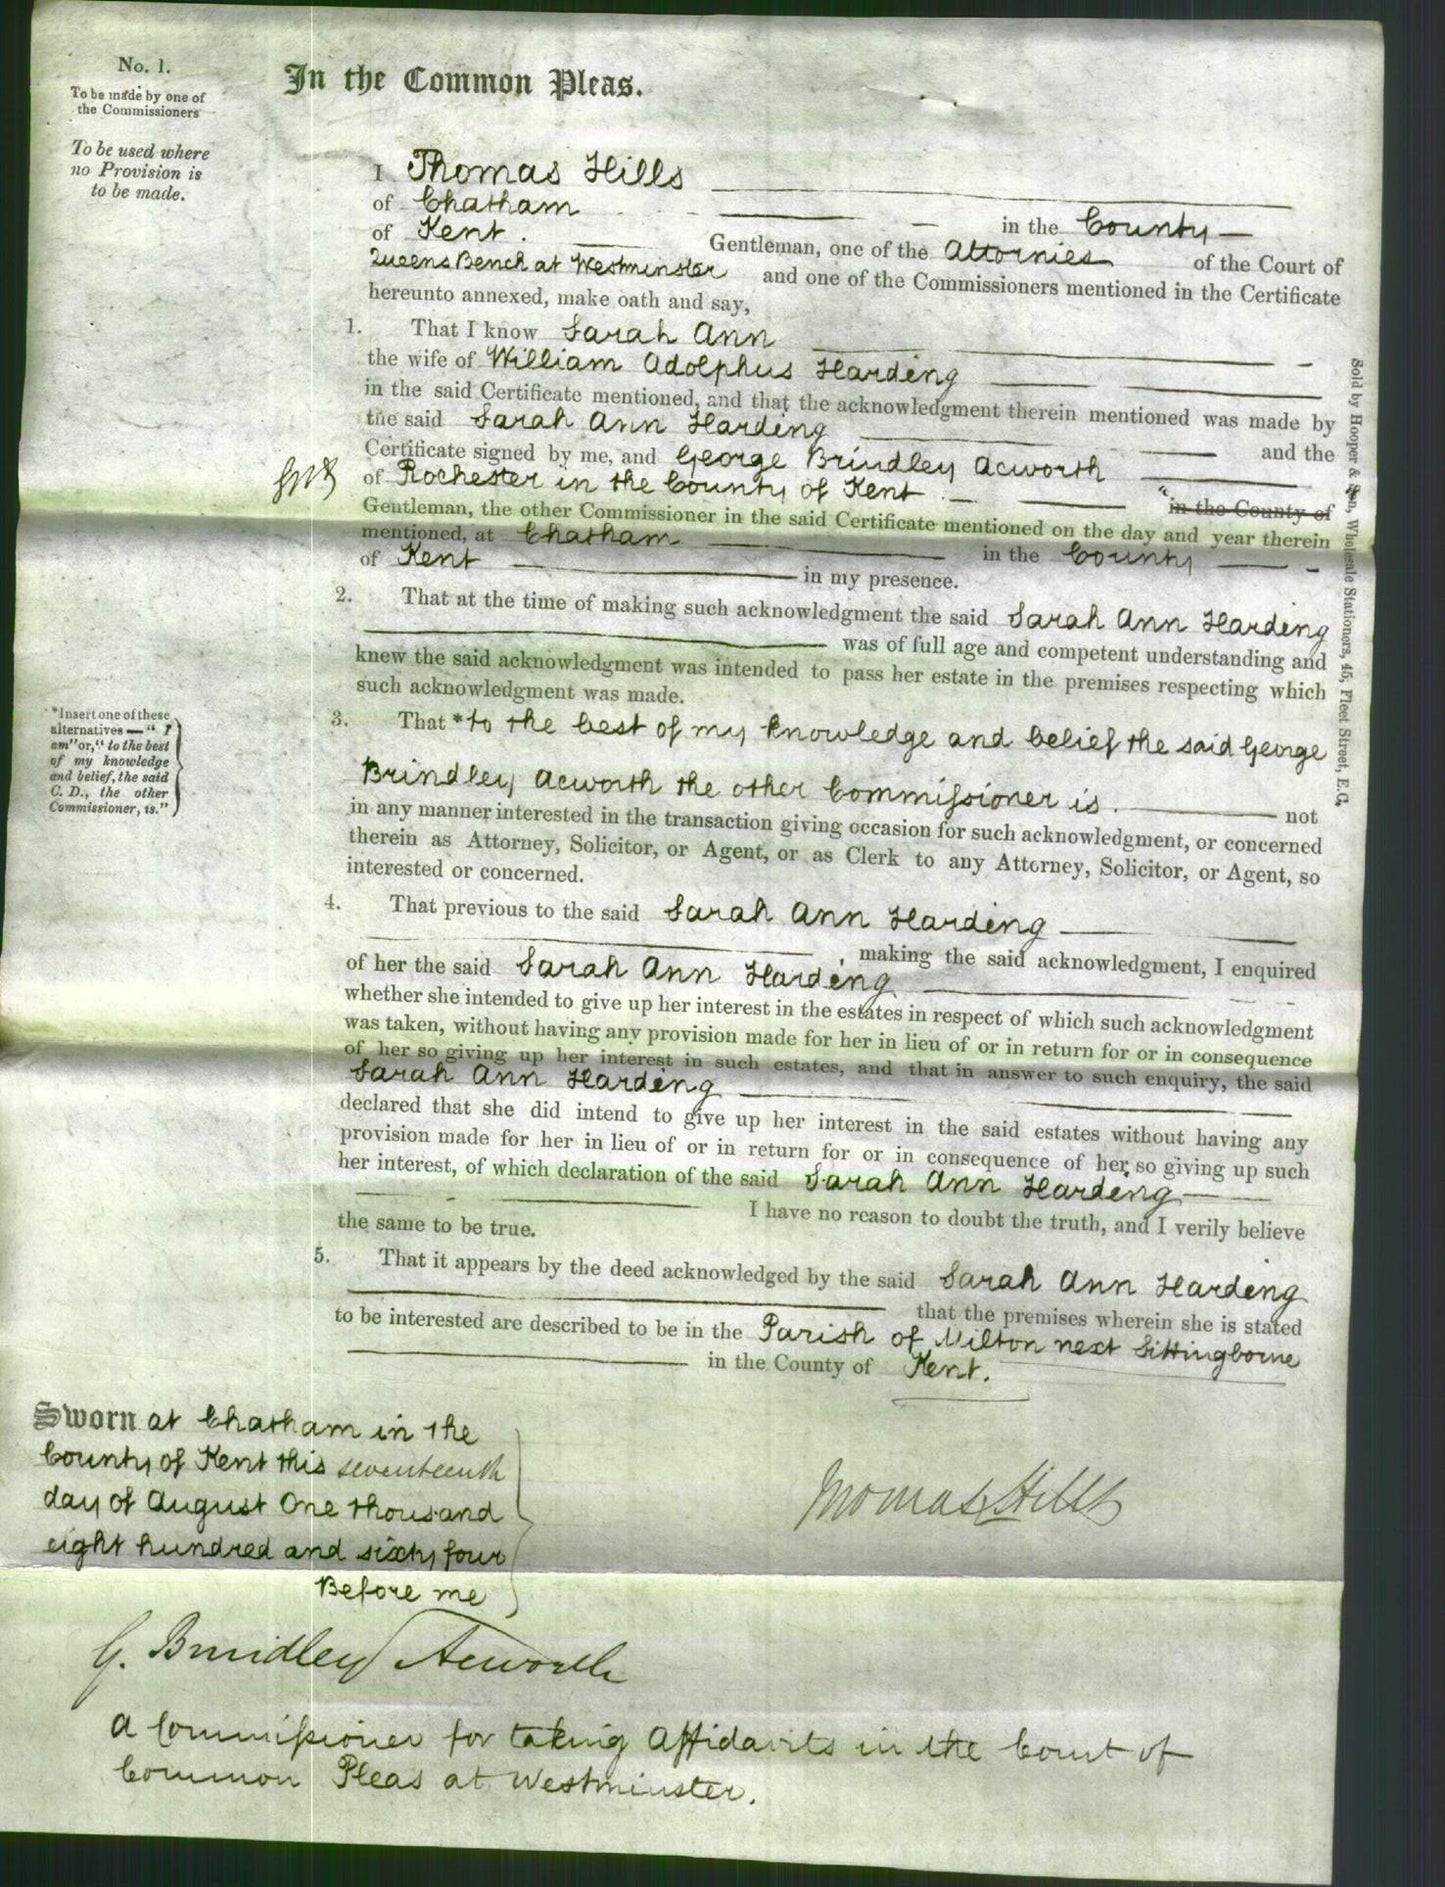 No. 1.
To be made by one of
the Commissioners
To be used where
no Provision is
to be made.
In the Common Pleas.
I Thomas Hills
of Chatham in the County
of Kent. Gentleman, one of the Attornies of the Court of
Queens Bench at Westminster and one of the Commissioners mentioned in the Certificate
hereunto annexed, make oath and say,
1. That I know Sarah Ann
the wife of William Adolphus Harding
in the said Certificate mentioned, and that the acknowledgment therein mentioned was made by
the said Sarah Ann Harding and the
Certificate signed by me, and George Brindley Acworth
of Rochester in the County of Kent. "in the County of
Gentleman, the other Commissioner in the said Certificate mentioned on the day and year therein
mentioned, at Chatham in the County
of Kent in my presence.
2. That at the time of making such acknowledgment the said Sarah Ann Harding
was of full age and competent understanding and
knew the said acknowledgment was intended to pass her estate in the premises respecting which
such acknowledgment was made.
*Insert one of these
alternatives — " I
am" or, " to the best
of my knowledge
and belief, the said
C. D., the other
Commissioner, is."
3. That * to the best of my knowledge and belief the said George
Brindley Acworth the other Commissioner is. not
in any manner interested in the transaction giving occasion for such acknowledgment, or concerned
therein as Attorney, Solicitor, or Agent, or as Clerk to any Attorney, Solicitor, or Agent, so
interested or concerned.
4. That previous to the said Sarah Ann Harding
making the said acknowledgment, I enquired
of her the said Sarah Ann Harding
whether she intended to give up her interest in the estates in respect of which such acknowledgment
was taken, without having any provision made for her in lieu of or in return for or in consequence
of her so giving up her interest in such estates, and that in answer to such enquiry, the said
Sarah Ann Harding
declared that she did intend to give up her interest in the said estates without having any
provision made for her in lieu of or in return for or in consequence of her so giving up such
her interest, of which declaration of the said Sarah Ann Harding
I have no reason to doubt the truth, and I verily believe
the same to be true.
5. That it appears by the deed acknowledged by the said Sarah Ann Harding
that the premises wherein she is stated
to be interested are described to be in the Parish of Milton next Sittingborne
in the County of Kent.
Sworn at Chatham in the
County of Kent this seventeenth
day of August One thousand
eight hundred and sixty four
Before me
Thomas Hills
G. Brindley Acworth
A Commissioner for taking Affidavits in the Court of
Common Pleas at Westminster.
Sold by Hooper & Son, Wholesale Stationers, 45, Fleet Street, E.C.